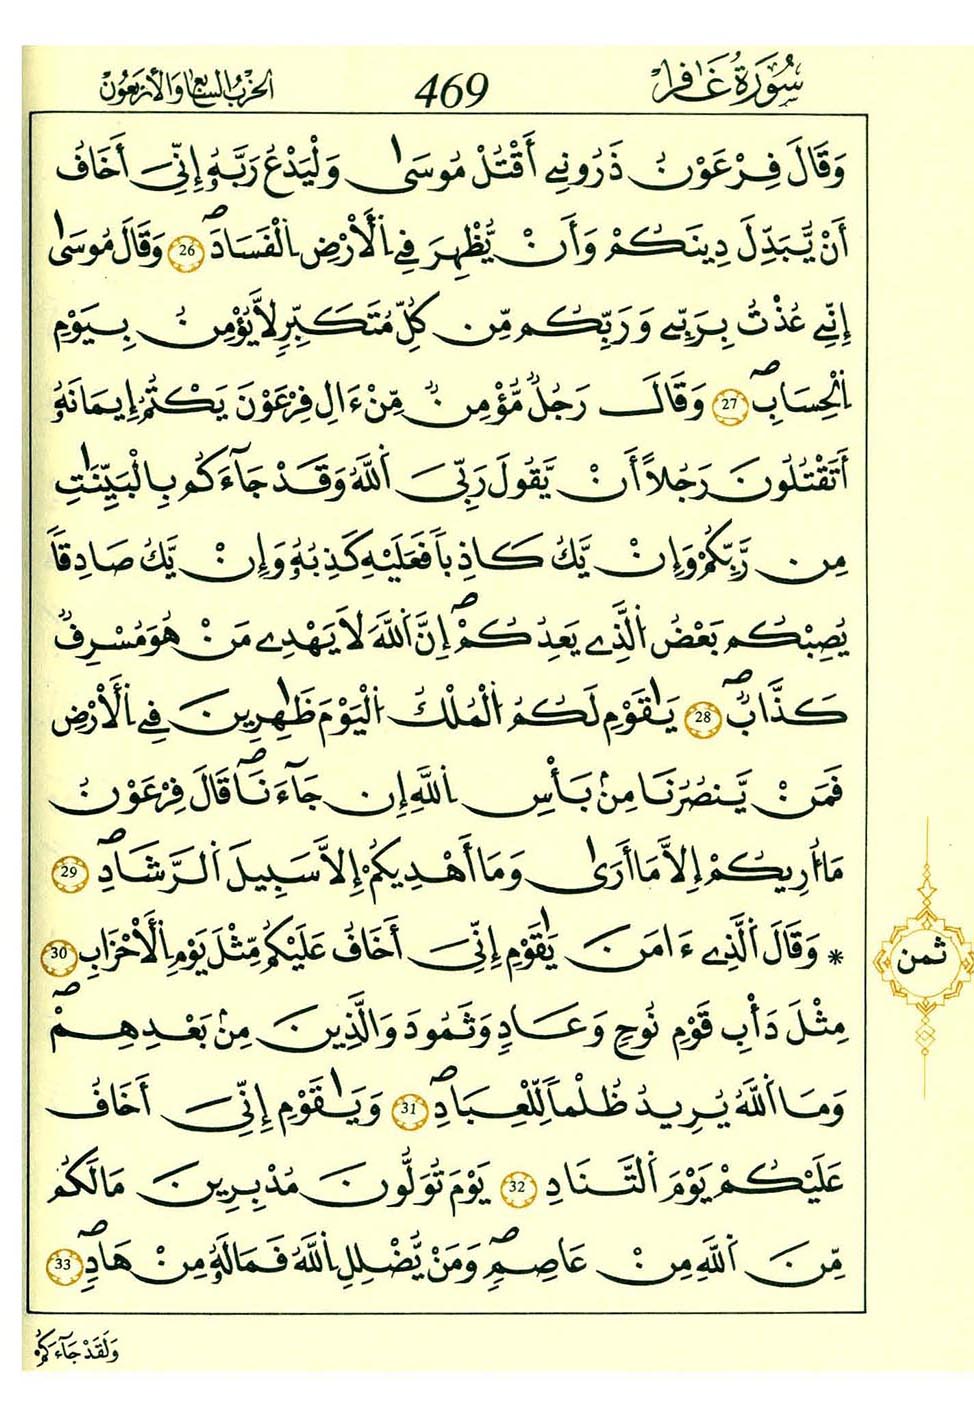 سُورَةُ غَافِر
469
الحِزْبُ السَّابِعُ وَالأَرْبَعُونَ
وَقَالَ فِرْعَوْنُ ذَرُونِےٓ أَقْتُلْ مُوسَىٰ وَلْيَدْعُ رَبَّهُۥٓ إِنِّيَ أَخَافُ
أَنْ يُّبَدِّلَ دِينَكُمْ وَأَنْ يُّظْهِرَ فِے اِ۬لَارْضِ اِ۬لْفَسَادَۖ 26 وَقَالَ مُوسَىٰٓ
إِنِّے عُذْتُ بِرَبِّے وَرَبِّكُم مِّن كُلِّ مُتَكَبِّرٍ لاَّ يُؤْمِنُ بِيَوْمِ
اِ۬لْحِسَابِۖ 27 وَقَالَ رَجُلٌ مُّؤْمِنٌ مِّنْ ءَالِ فِرْعَوْنَ يَكْتُمُ إِيمَٰنَهُۥٓ
أَتَقْتُلُونَ رَجُلاً أَنْ يَّقُولَ رَبِّيَ اَ۬للَّهُ وَقَدْ جَآءَكُم بِالْبَيِّنَٰتِ
مِن رَّبِّكُمْ وَإِنْ يَّكُ كَاذِباً فَعَلَيْهِ كَذِبُهُۥ وَإِنْ يَّكُ صَادِقاً
يُصِبْكُم بَعْضُ اُ۬لَّذِے يَعِدُكُمْۖ إِنَّ اَ۬للَّهَ لَا يَهْدِے مَنْ هُوَ مُسْرِفٌ
كَذَّابٌۖ 28 يَٰقَوْمِ لَكُمُ اُ۬لْمُلْكُ اُ۬لْيَوْمَ ظَٰهِرِينَ فِے اِ۬لَارْضِ
فَمَنْ يَّنصُرُنَا مِنۢ بَأْسِ اِ۬للَّهِ إِن جَآءَنَاۖ قَالَ فِرْعَوْنُ
مَآ أُرِيكُمُۥٓ إِلاَّ مَآ أَرَىٰ وَمَآ أَهْدِيكُمُۥٓ إِلاَّ سَبِيلَ اَ۬لرَّشَادِۖ 29
* وَقَالَ اَ۬لَّذِےٓ ءَامَنَ يَٰقَوْمِ إِنِّيَ أَخَافُ عَلَيْكُم مِّثْلَ يَوْمِ اِ۬لَاحْزَابِ 30
مِثْلَ دَأْبِ قَوْمِ نُوحٍ وَعَادٍ وَثَمُودَ وَالَّذِينَ مِنۢ بَعْدِهِمْۖ
وَمَا اَ۬للَّهُ يُرِيدُ ظُلْماً لِّلْعِبَادِۖ 31 وَيَٰقَوْمِ إِنِّيَ أَخَافُ
عَلَيْكُمْ يَوْمَ اَ۬لتَّنَادِ 32 يَوْمَ تُوَلُّونَ مُدْبِرِينَ مَا لَكُم
مِّنَ اَ۬للَّهِ مِنْ عَاصِمٍۖ وَمَنْ يُّضْلِلِ اِ۬للَّهُ فَمَا لَهُۥ مِنْ هَادٍۖ 33
ثمن
وَلَقَدْ جَآءَكُمْ